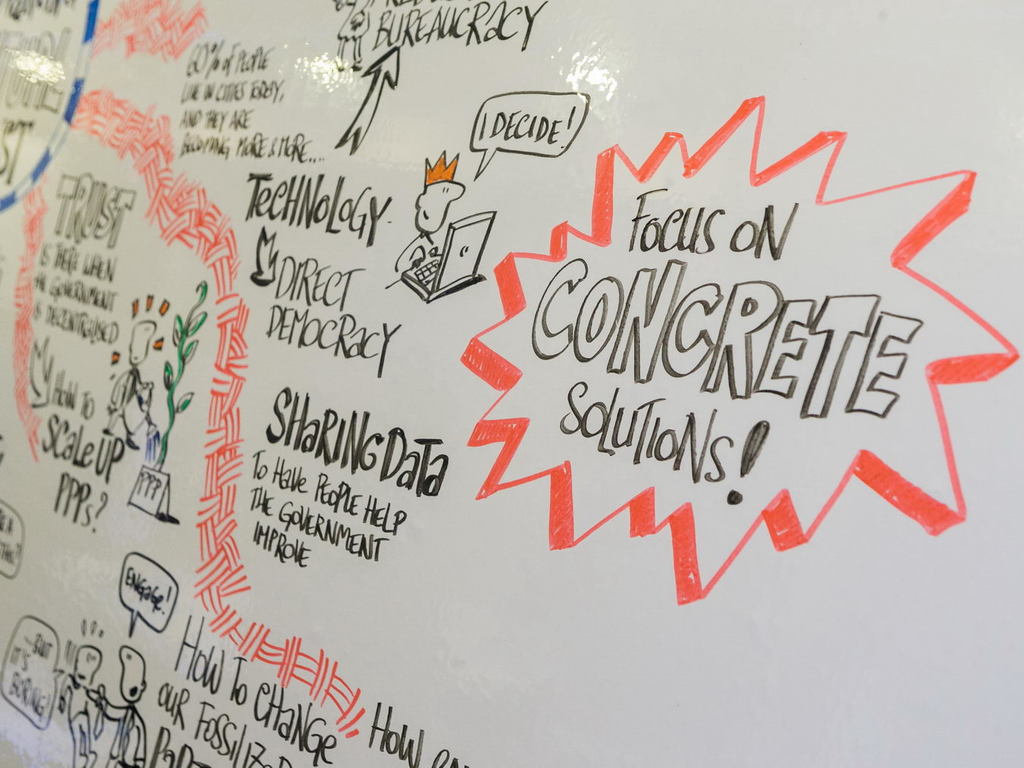 BUREAUCRACY
60% OF PEOPLE
LIVE IN CITIES TODAY,
AND THEY ARE
BECOMING MORE & MORE....
I DECIDE!
TECHNOLOGY
DIRECT
DEMOCRACY
SHARING DATA
TO HAVE PEOPLE HELP
THE GOVERNMENT
IMPROVE
FOCUS ON
CONCRETE
SOLUTIONS!
TRUST
IS THERE WHEN
THE GOVERNMENT
IS DECENTRALISED
HOW TO
SCALE UP
PPPs?
PPP
ENGAGE!
...BUT
IT'S
BORING!
HOW TO CHANGE
OUR
HOW